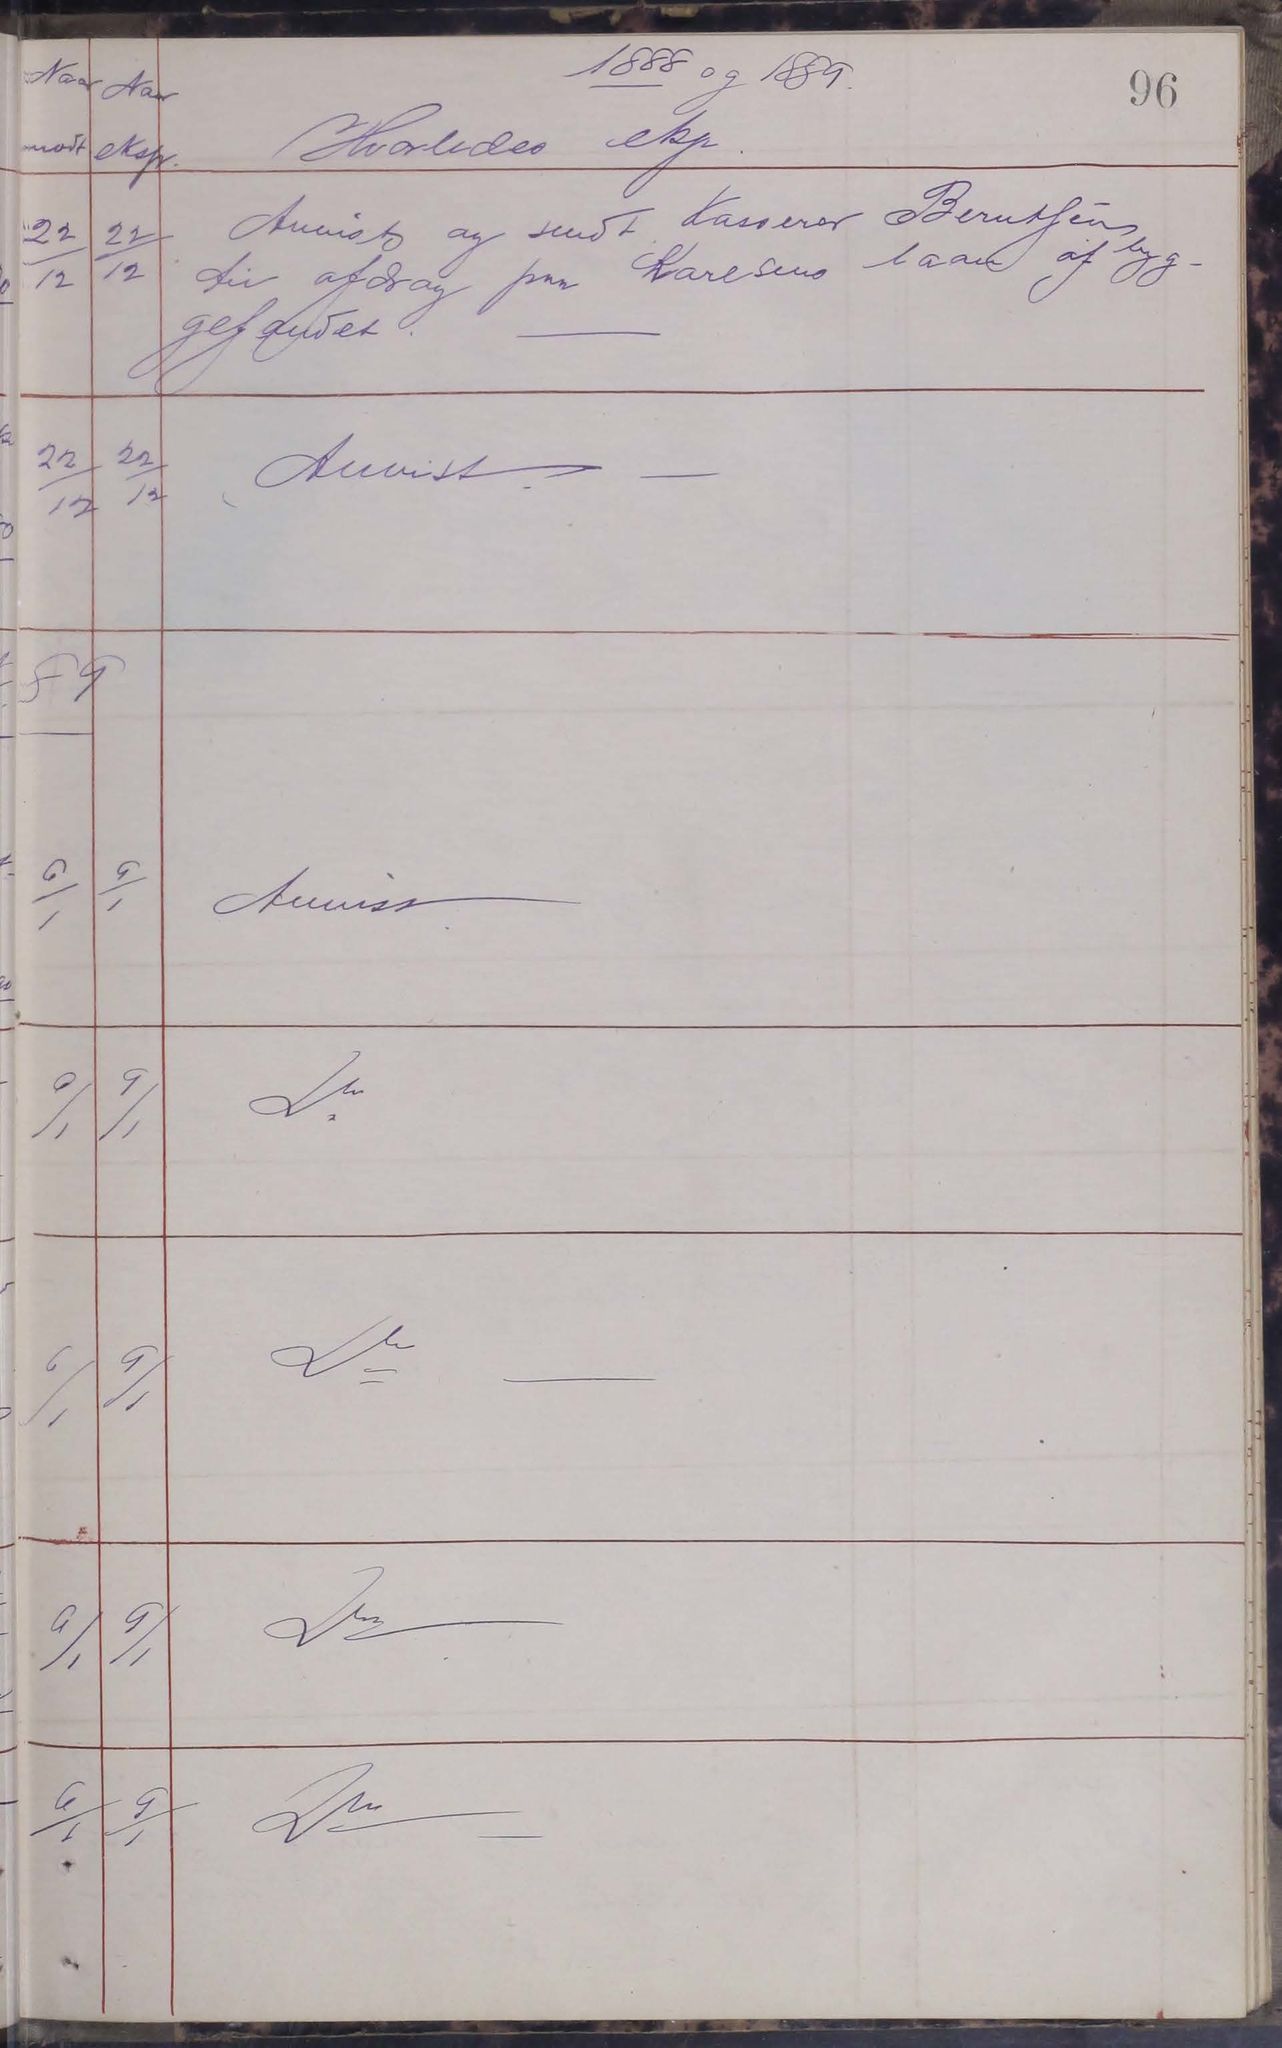 1888 og 1889.
96
Naar Naar
modt ekspr. Hvorledes eksp.
22/12 22/12 Anvist og sendt Kasserer Berntsen
til afdrag paa Karesens laan af byg-
gefondet.
22/12 22/12 Anvist
89
9/1 9/1 Anvist
9/1 9/1 Do
9/1 9/1 Do
9/1 9/1 Do
9/1 9/1 Do